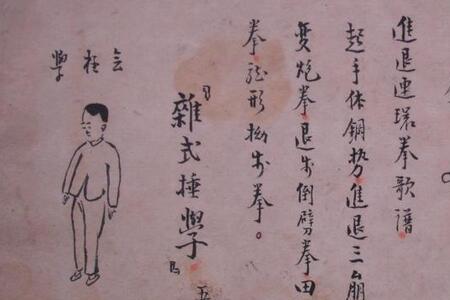 進退連環拳歌譜
起手休鋼势進退三崩
變炮拳退步倒劈拳由
拳形拗步拳。
雜式捶學
五
學